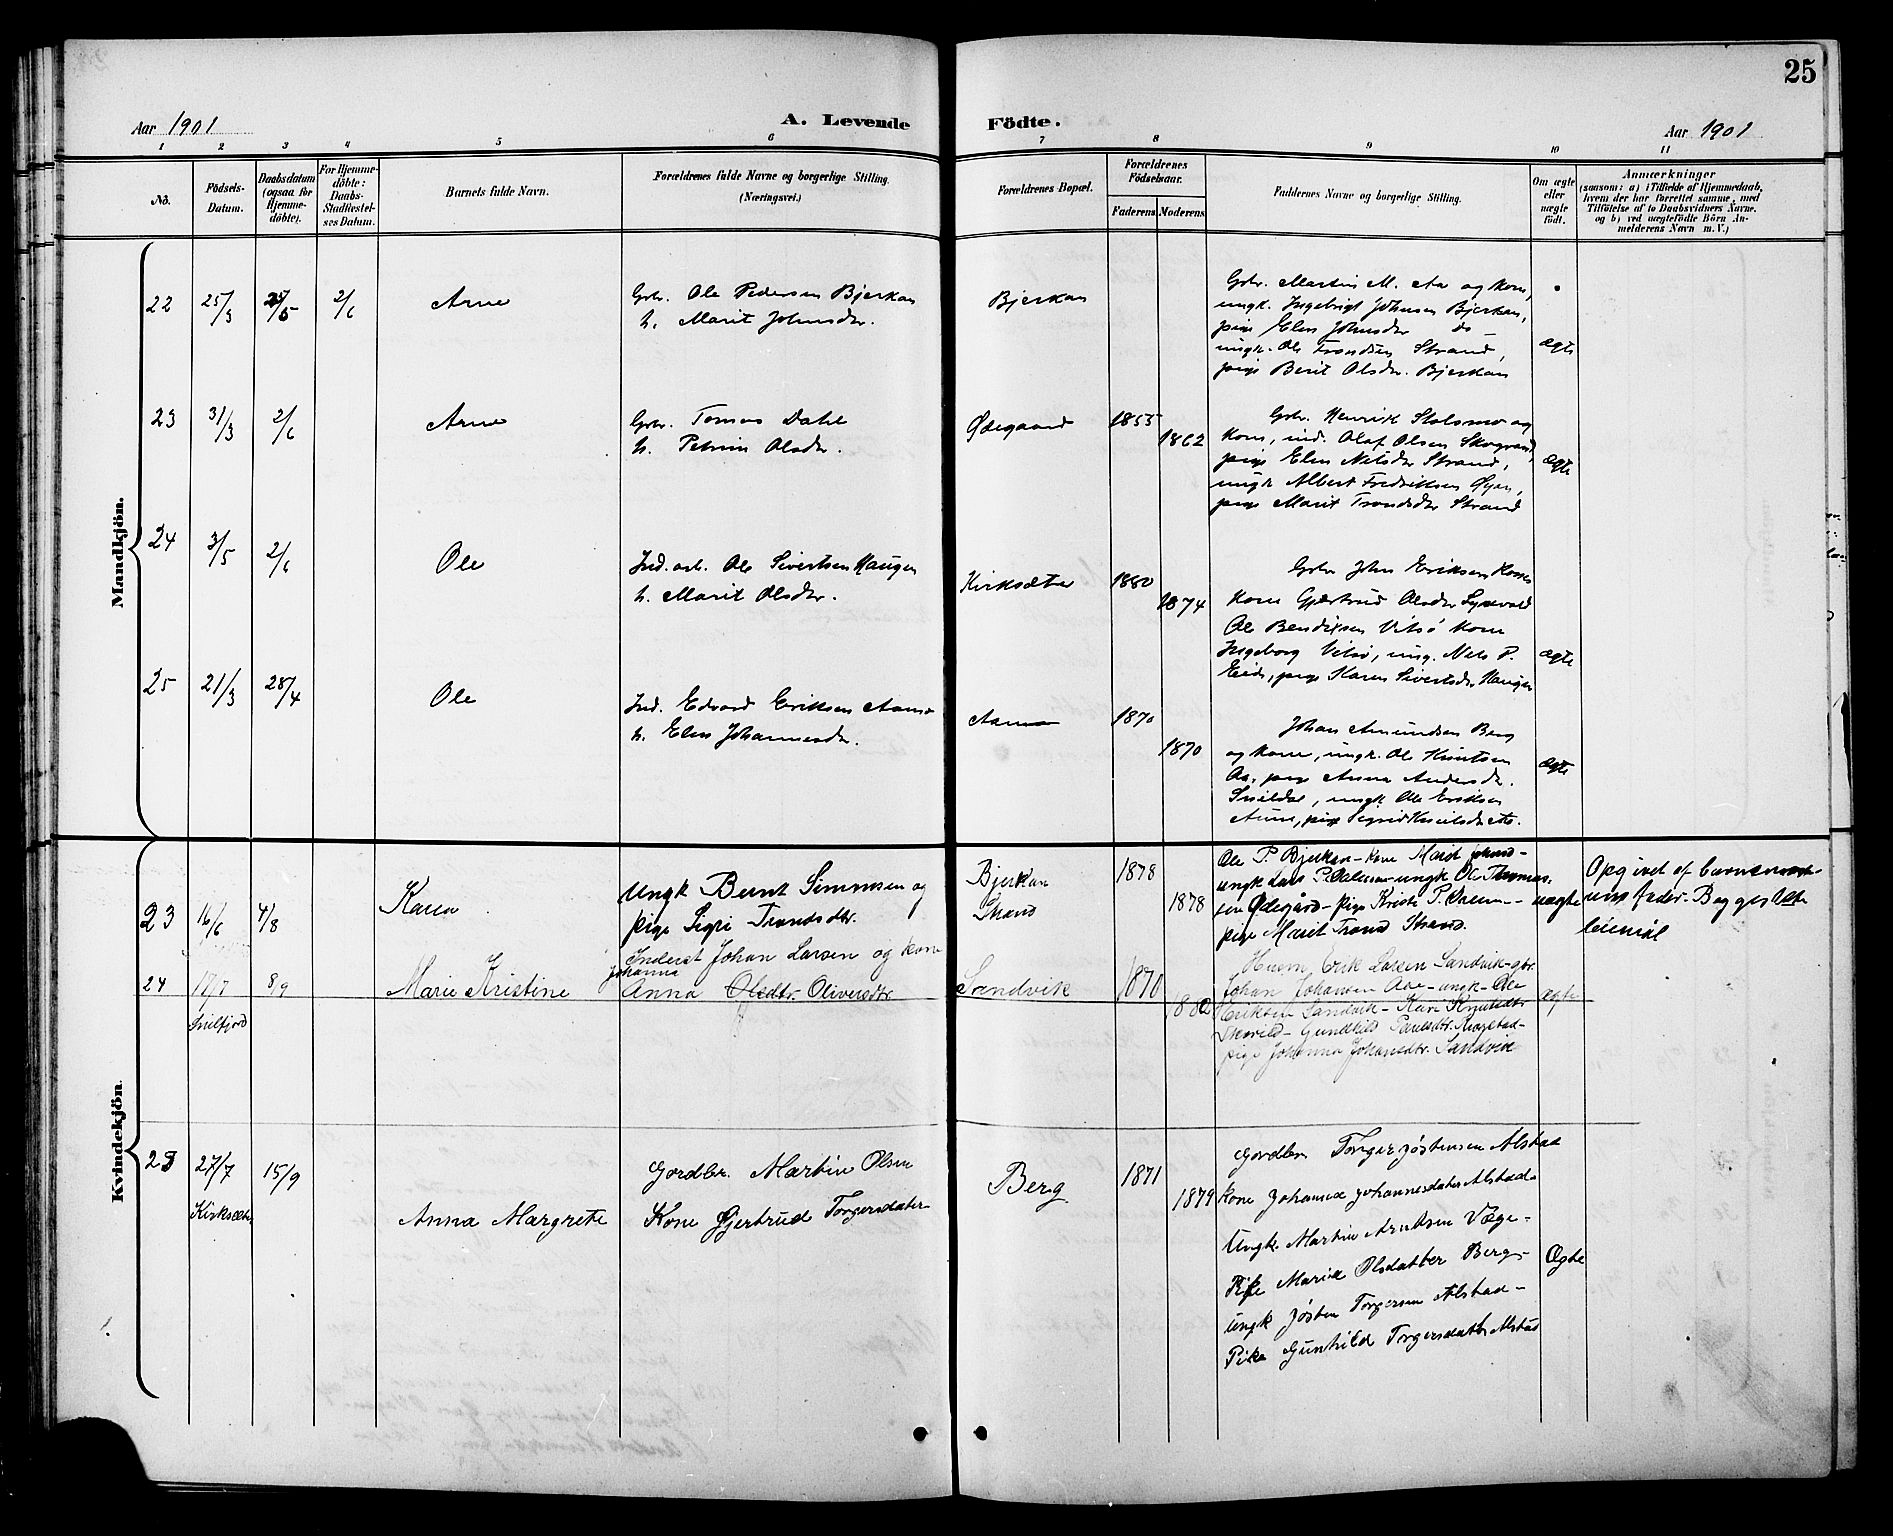 25
Aar 1901
A. Levende Födte.
Aar 1901
1 2 3 4 5 6 7 8 9 10 11
No.
Födsels-Datum.
Daabsdatum (ogsaa for Hjemme-döbte).
For Hjemme-döbte: Daabs-Stadfæstel-ses Datum.
Barnets fulde Navn.
Forældrenes fulde Navne og borgerlige Stilling.
(Næringsvei.)
Forældrenes Bopæl.
Forældrenes Födselsaar.
Faderens Moderens
Faddernes Navne og borgerlige Stilling.
Om ægte eller uægte födt.
Anmærkninger
(saasom: a) i Tilfælde af Hjemmedaab,
hvem der har forrettet samme, med
Tilföielse af to Daabsvidners Navne,
og b) ved uægtefödte Börn An-
melderens Navn m. V.)
Mandkjön.
22 25/3 25/5 2/6 Arne
Gbr. Ole Pedersen Bjerkan
h. Marit Johnsdr.
Bjerkan
Gbr. Martin M. Aa og kone,
ungk. Ingebrigt Johnsen Bjerkan,
pige Elen Johnsdr do
ungk. Ole Trondsen Strand,
pige Berit Olsdr. Bjerkan
ægte
23 31/3 2/6 Arne
Gbr. Tomas Dahl
h. Petrine Olsdr.
Ødegaard 1855 1862
Gbr. Henrik Stolsmo og
kone, ind. Olaf Olsen Skogrand,
pige Elen Nelsdr Strand,
ungk Albert Fredriksen Øyen,
pige Marit Trondsdr Strand
ægte
24 3/5 2/6 Ole
Ind. arb. Ole Sivertsen Haugen
h. Marit Olsdr.
Kirksæter 1880 1874
Gbr John Eriksen
kone Gjertrud Olsdr
Ole Bendixen Vitsö kone
Ingeborg Vitsö, ung. Nels P.
Eide, pige Karen Sivertsdr Haugen
ægte
25 21/3 28/4 Ole
Ind. Edvard Eriksen
h. Elen Johannesdr.
1870 1870
Johan Amundsen Berg
og kone, ungk. Ole Knutsen
Aa, pige Anna Andersdr.
Snildal, ungk Ole Eriksen
Aune, pige Sigrid
ægte
Kvindekjön.
23 16/6 4/8 Karen
Ungk Bernt Simonsen og
pige Sigri Trondsdtr.
Bjerkan
Strand
1878 1878
Ole P. Bjerkan - kone Marit
ungk Lars P. - ungk Ole Thomas-
sen Ødegård - pige Kristi P.
pige Marit Trond Strand.
uægte
Opgivet af barnemod-
rens fader. Begges 1ste
leiemål
24 17/7 8/9 Marie Kristine
Snilfjord
Inderst Johan Larsen og kone
Johanna
Anna Olsdtr. Oliversdtr.
Sandvik 1870 1880
Husm Erik Larsen Sandvik - gbr.
Johan Johansen Aae - ungk Ole
Eriksen Sandvik - Kari Knutsdtr
- Gundhild Paulsdtr.
pige Johanna Johansdtr. Sandvik
ægte
25 27/7 15/9
Kirksæter
Anna Margrete
Gordbr. Martin Olsen
Kone Gjertrud Torgersdater
Berg 1871 1879
Gordbr Torger Jøstensen Alstad
Kone Johanna Johannesdater Alstad
Ungk. Martin Arntsen Væge -
Pike Maria Olsdatter Berg -
ungk Jøsten Torgersen Alstad -
Pike Gunhild Torgersdatter Alstad
Ægte